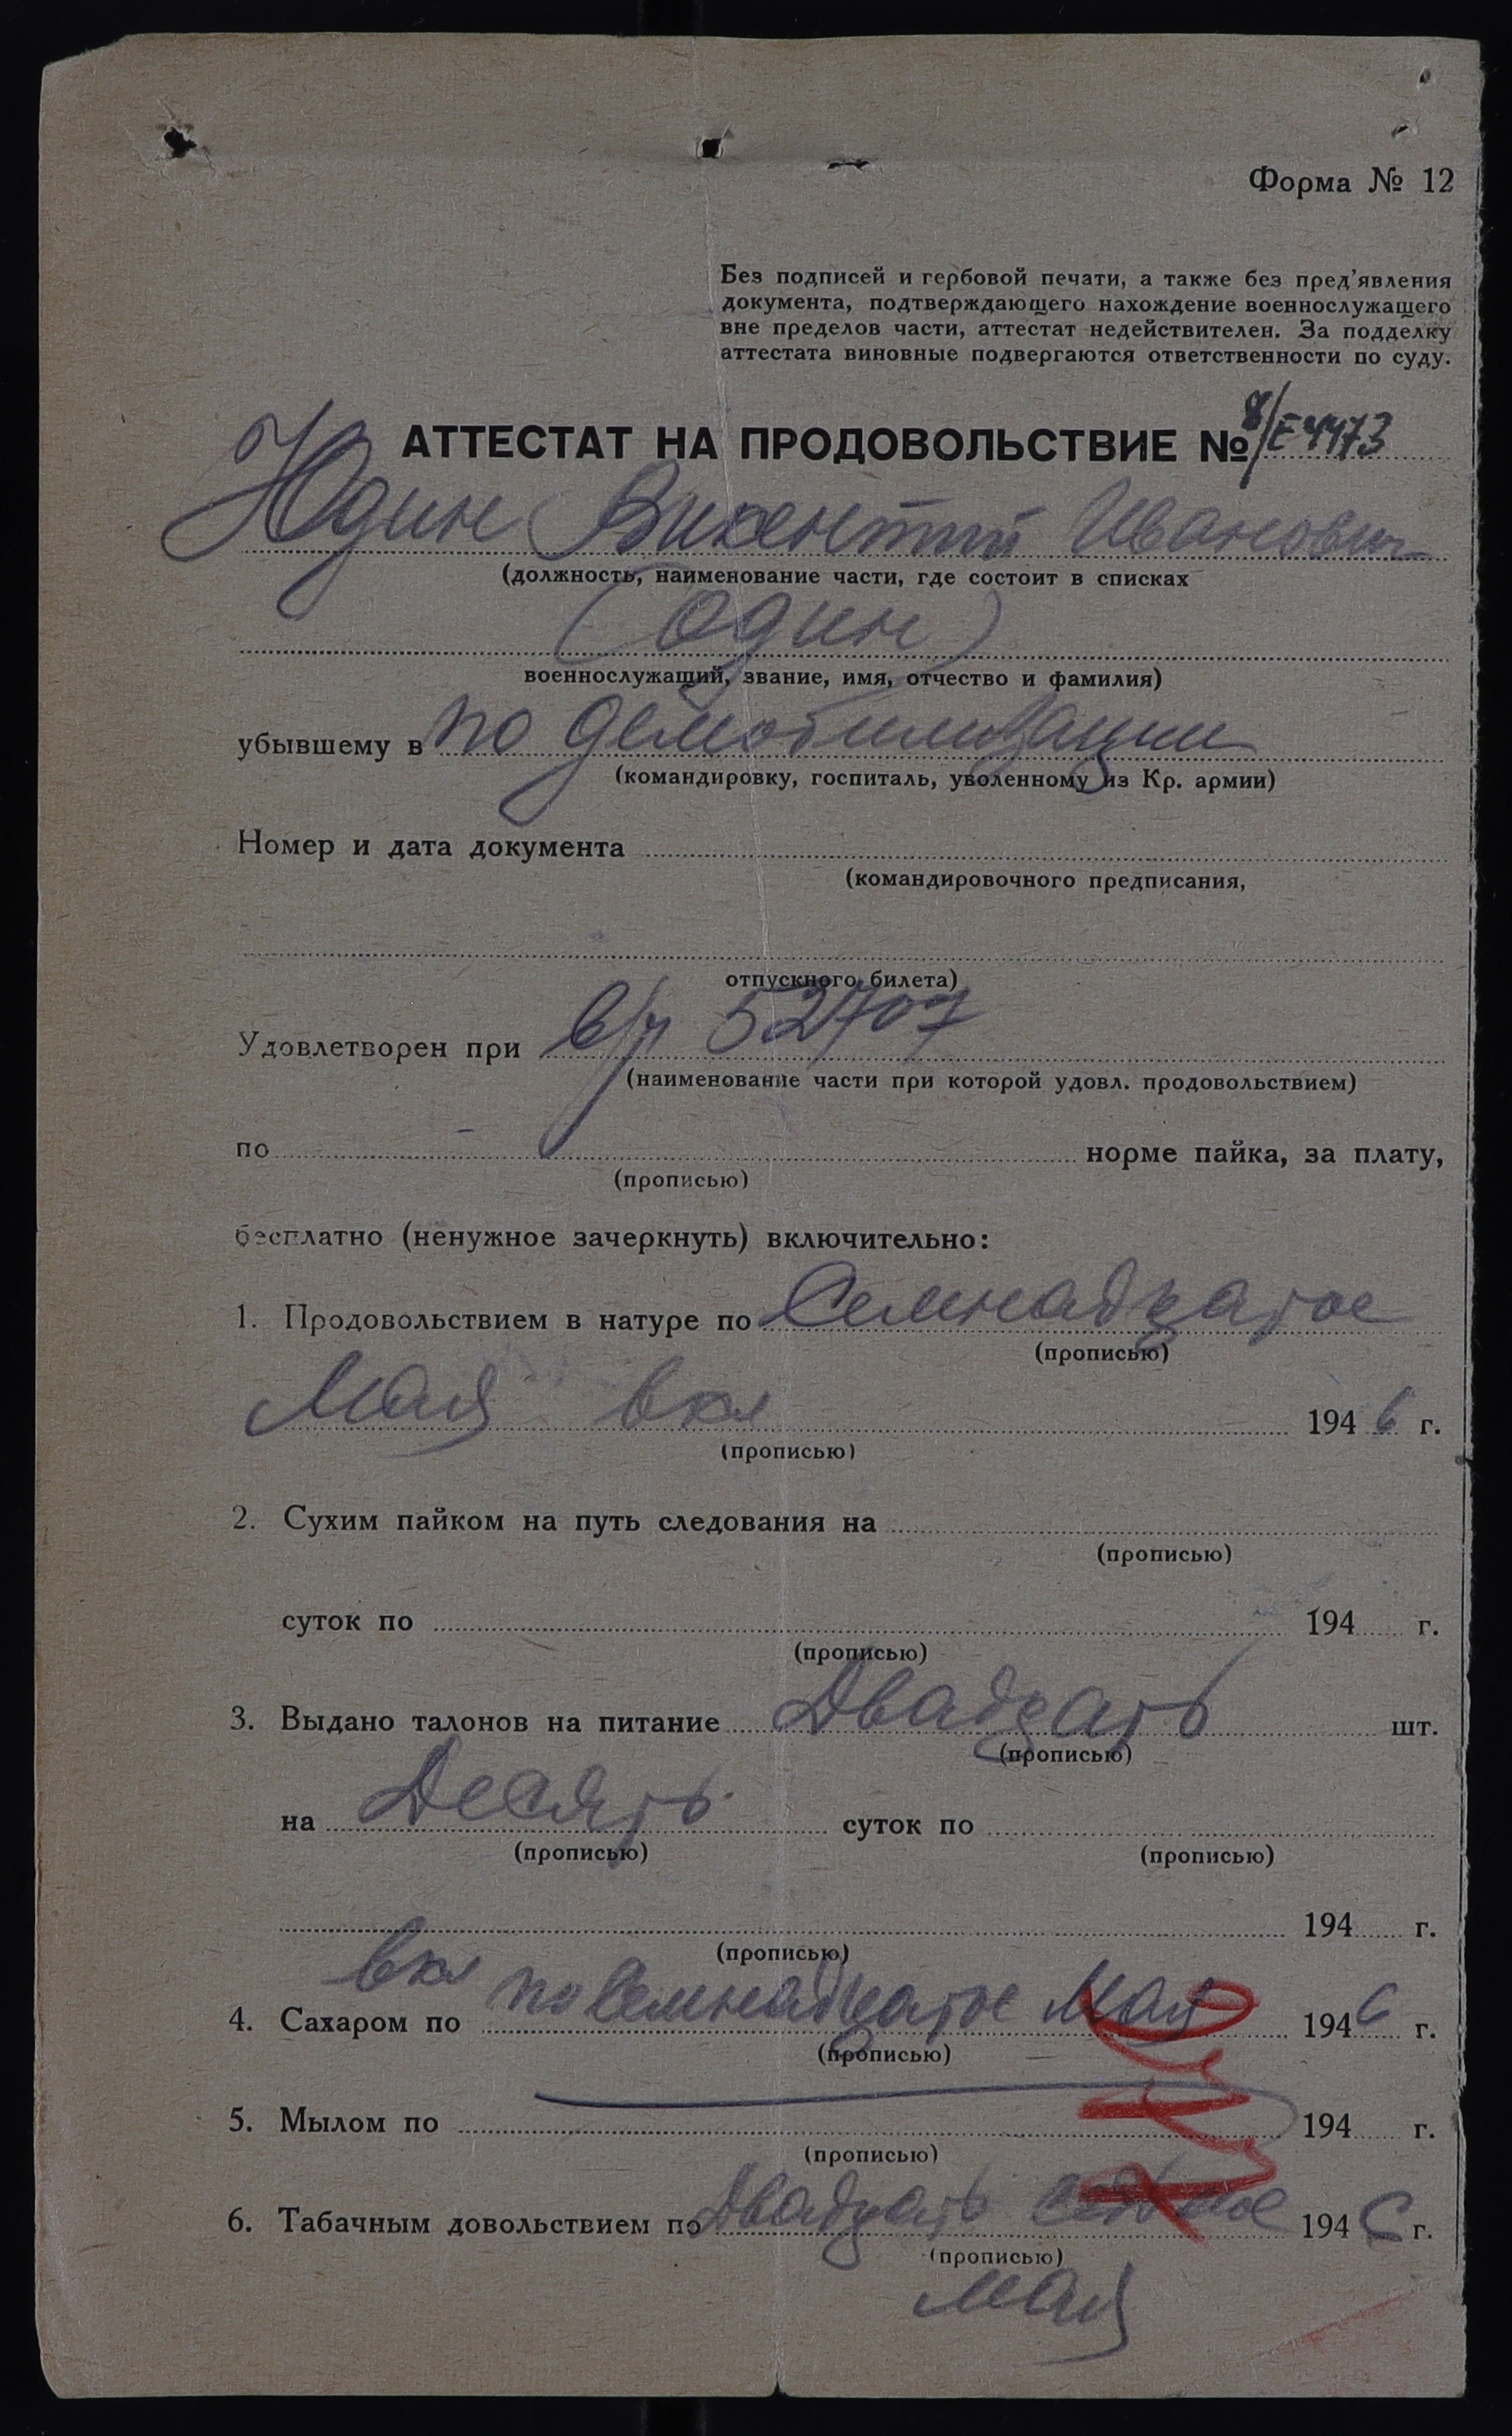 Форма № 12
Без подписей и гербовой печати, а также без пред'явления
документа, подтверждающего нахождение военнослужащего
вне пределов части, аттестат недействителен. За подделку
аттестата виновные подвергаются ответственности по суду.
АТТЕСТАТ НА ПРОДОВОЛЬСТВИЕ № 8/Е4473
Юдин Викентий Иванович
(должность, наименование части, где состоит в списках
(один)
военнослужащий, звание, имя, отчество и фамилия)
убывшему в по демобилизации
(командировку, госпиталь, уволенному из Кр. армии)
Номер и дата документа
(командировочного предписания,
отпускного билета)
Удовлетворен при в/ч 52707
(наименование части при которой удовл. продовольствием)
по норме пайка, за плату,
(прописью)
бесплатно (ненужное зачеркнуть) включительно:
1. Продовольствием в натуре по Семнадцатое
(прописью)
Мая вкл 1946 г.
(прописью)
2. Сухим пайком на путь следования на
(прописью)
суток по 194 г.
(прописью)
3. Выдано талонов на питание Двадцать шт.
(прописью)
на Десять суток по
(прописью) (прописью)
194 г.
(прописью)
вкл
4. Сахаром по по Семнадцатое Мая 1946 г.
(прописью)
5. Мылом по 194 г.
(прописью)
6. Табачным довольствием по Двадцать седьмое 1946 г.
(прописью)
мая